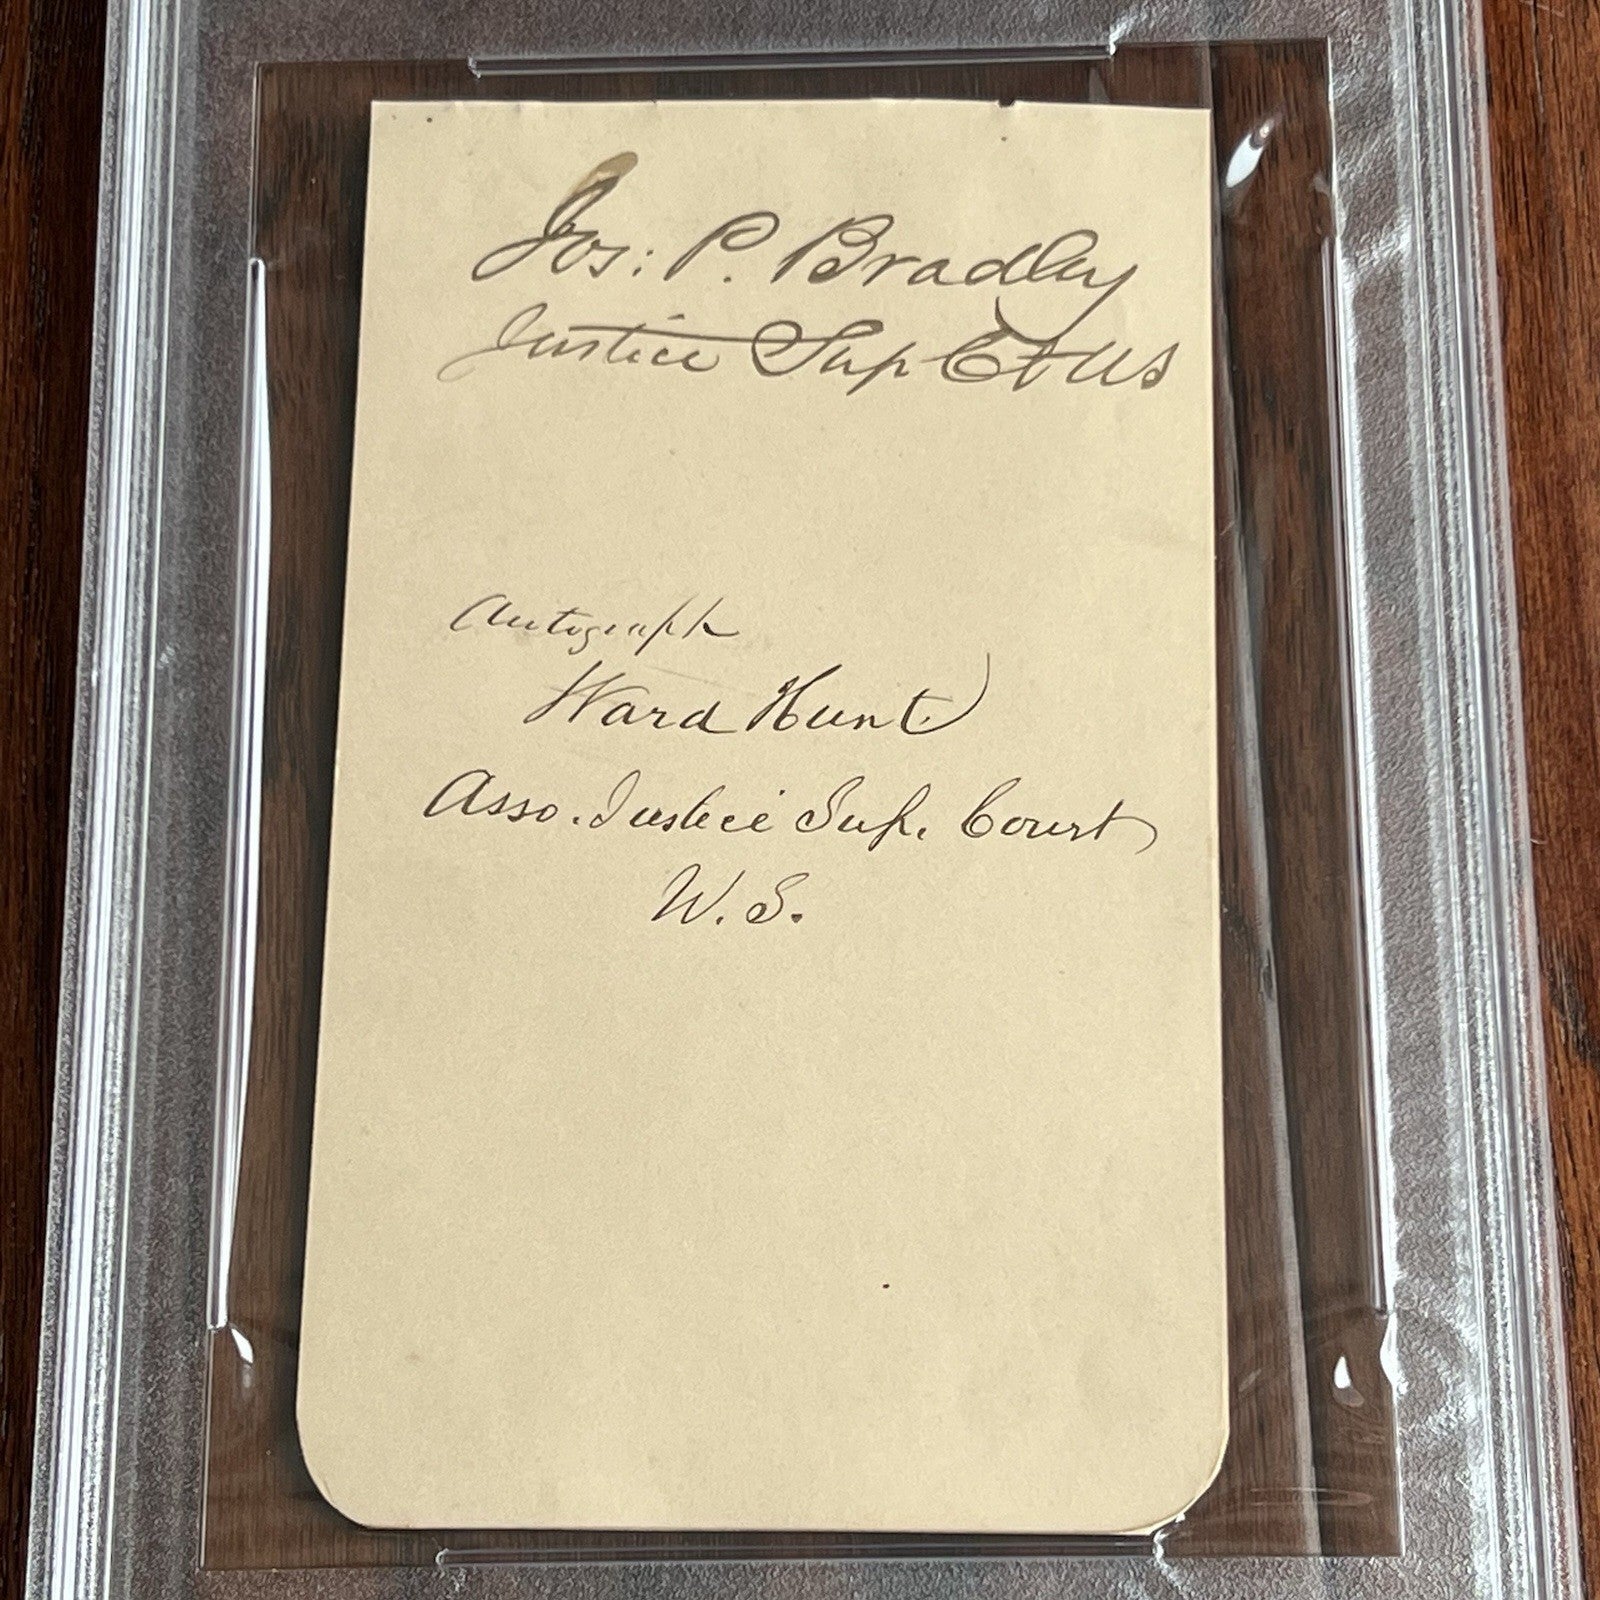 Jos: P. Bradley
Justice Sup Ct US
Autograph
Ward Hunt
Asso. Justice Sup. Court
U. S.